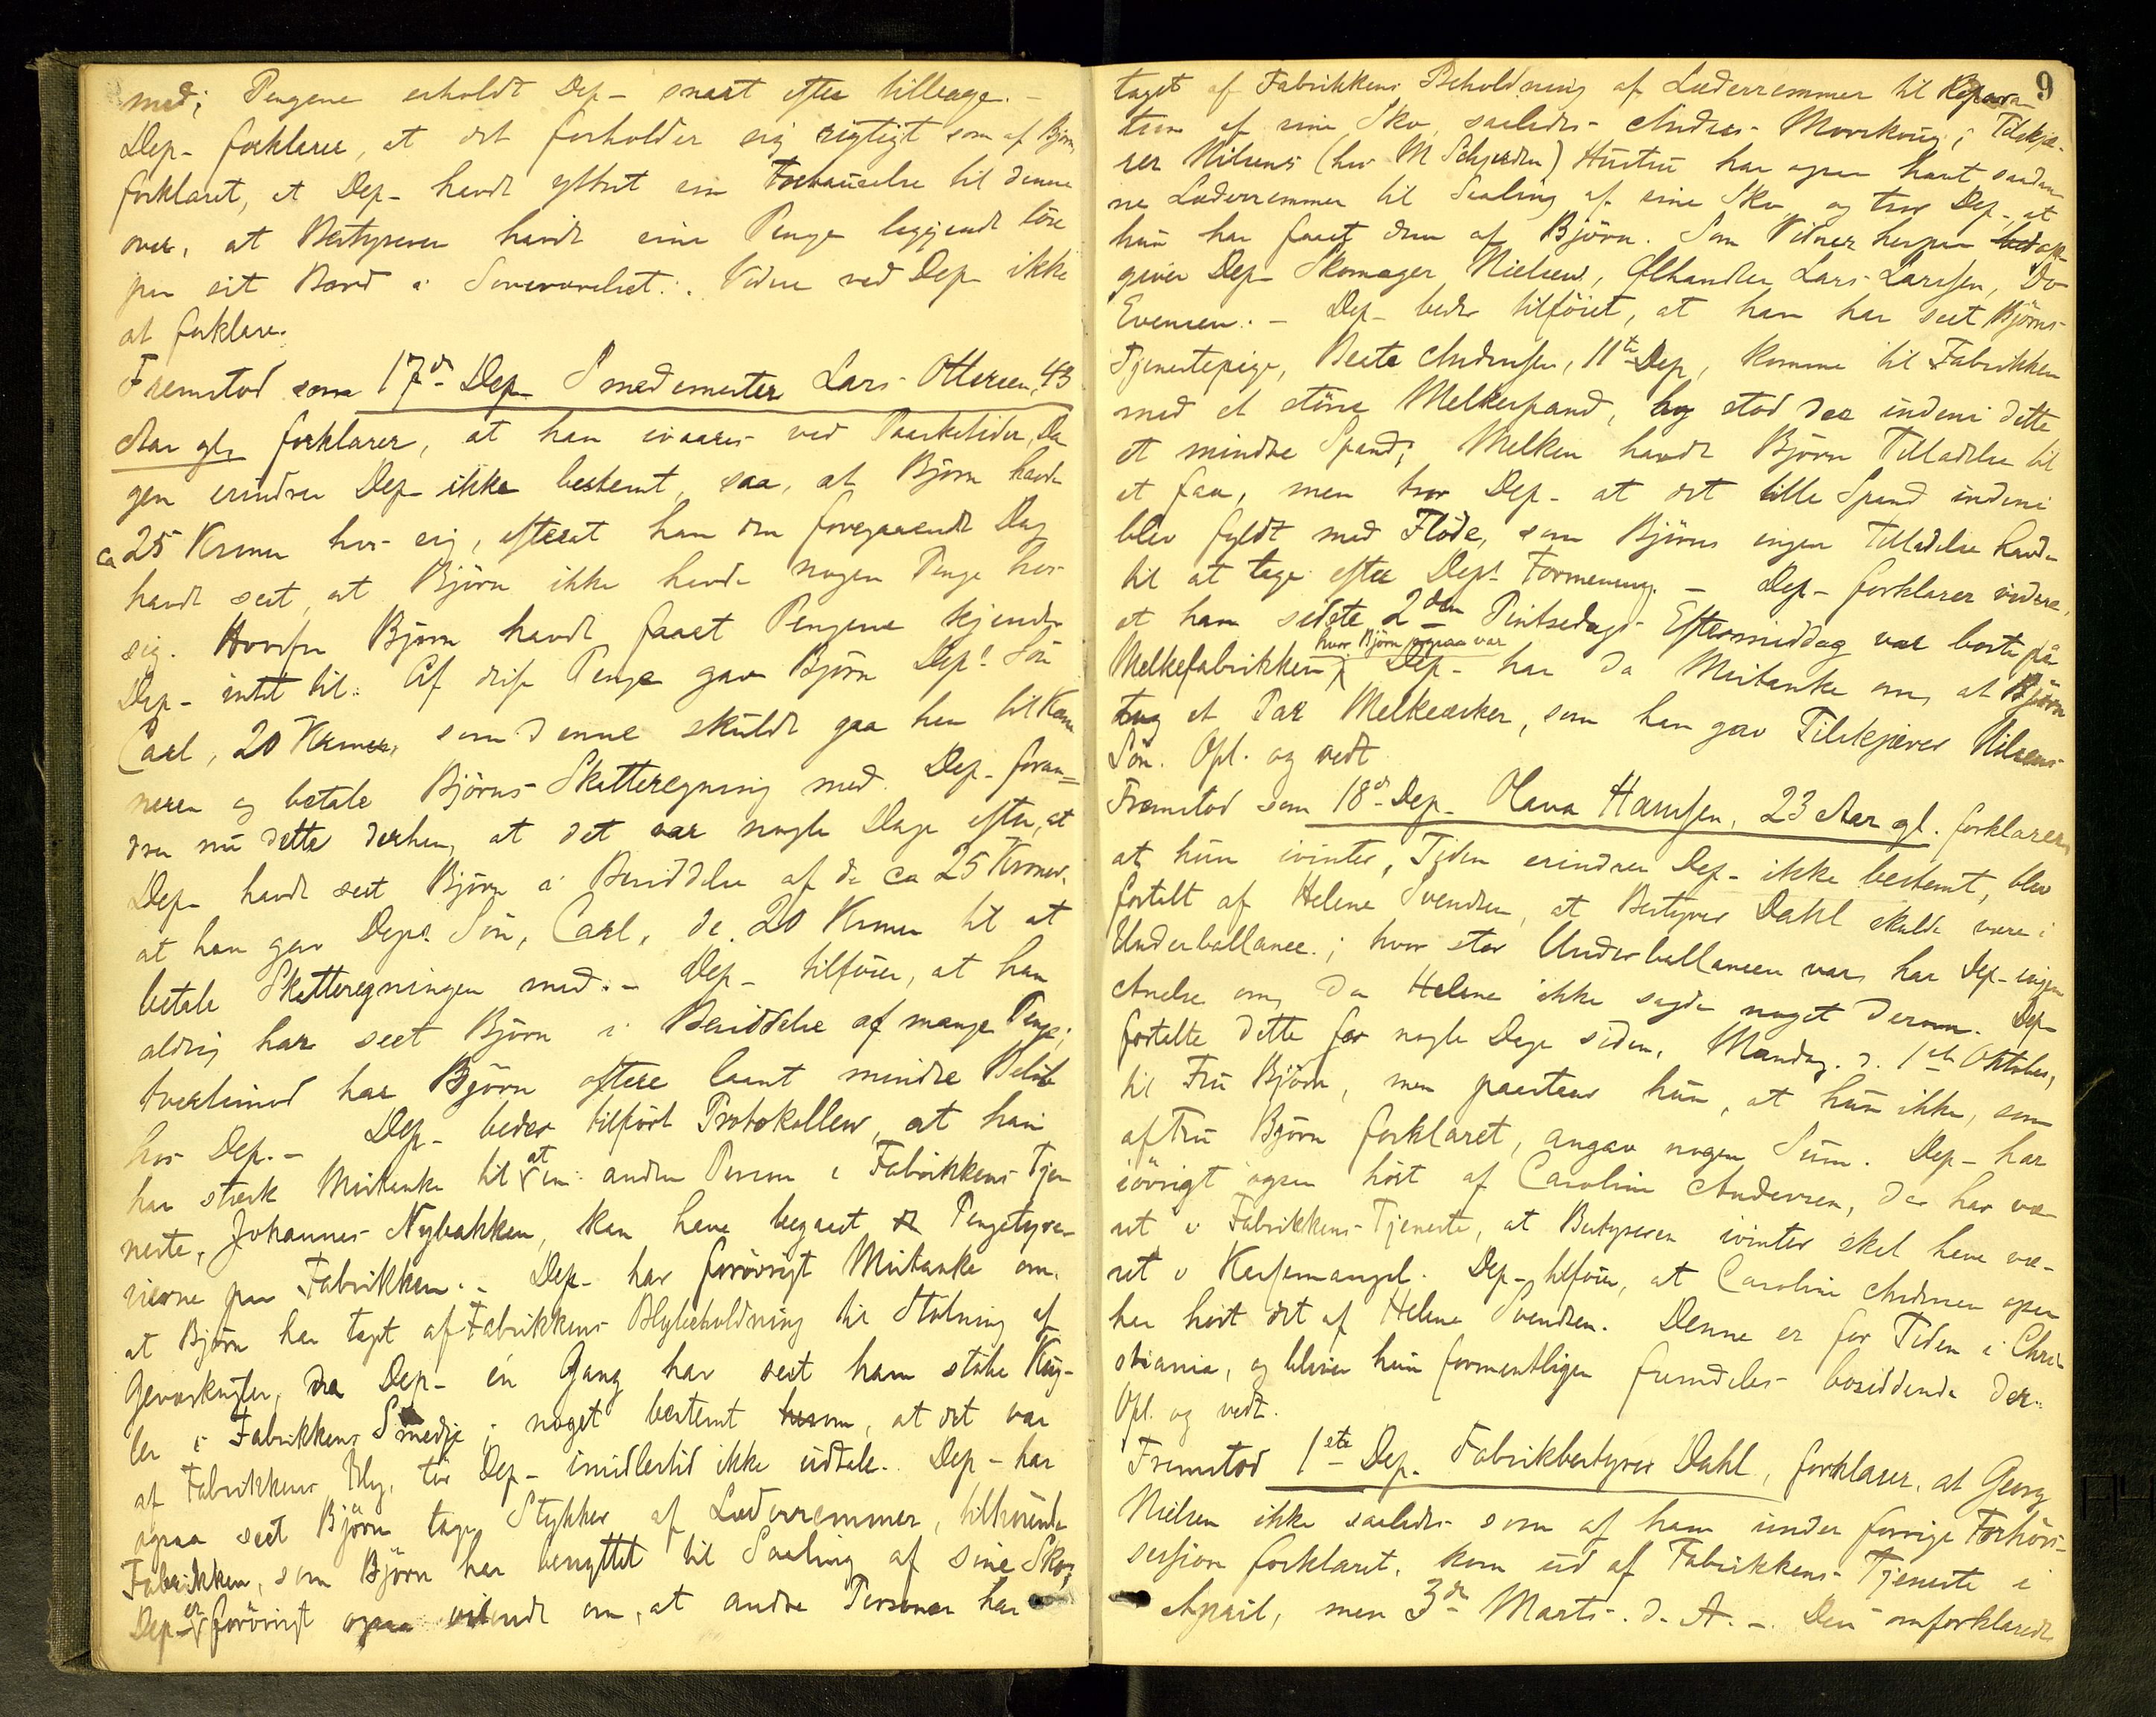 med; Pengene erholdt Dep- snart efter tilbage. -
Dep- forklarer, at det forholder sig rigtigt som af Bjørn
forklaret, at Dep- havde yttret sin Forbauselse til denne
over, at Bestyreren havde sine Penge liggende løse
paa sit Bord i Soveværelset. Videre ved Dep- ikke
at forklare.
Fremstod som 17de Dep- Smedemester Lars Ottersen, 43
Aar gl, forklarer, at han ivaares ved Paasketider, Da
gen erindrer Dep- ikke bestemt, saa, at Bjørn havde
ca 25 Kroner hos sig, efterat han den foregaaende Dag
havde seet, at Bjørn ikke havde nogen Penge hos
sig. Hvorfra Bjørn havde faaet Pengene kjender
Dep- intet til. Af disse Penge gav Bjørn Deps Søn
Carl, 20 Kroner, som denne skulde gaa hen til Kæm
neren og betale Bjørns Skatteregning med. Dep- foran=
drer nu dette derhen, at det var nogle Dage efter, at
Dep- havde seet Bjørn i Besiddelse af de ca 25 Kroner,
at han gav Deps Søn, Carl, de 20 Kroner til at
betale Skatteregningen med. - Dep- tilføier, at han
aldrig har seet Bjørn i Besiddelse af mange Penge;
tvertimod har Bjørn oftere laant mindre Beløb
hos Dep. - Dep- beder tilført Protokollen, at han
har stærk Mistanke til at en anden Person i Fabrikkens Tje
neste, Johannes Nybakken, kan have begaaet Pengetyve
rierne paa Fabrikken. - Dep- har forøvrigt Mistanke om,
at Bjørn har taget af Fabrikkens Blybeholdning til Støbning af
Geværkugler, da Dep- én Gang har seet ham støbe Kug-
ler i Fabrikkens Smedje; noget bestemt herom, at det var
af Fabrikkens Bly, tør Dep- imidlertid ikke udtale. Dep- har
ogsaa seet Bjørn tage Stykker af Læderremmer, tilhørende
Fabrikken, som Bjørn har benyttet til Saaling af sine Sko;
Dep- er forøvrigt ogsaa vidende om, at andre Personer har
9
taget af Fabrikkens Beholdning af Læderremmer til Repara
tion af sine Sko, saaledes Andreas Moerkvug; Tilskjæ-
rer Nilsens (hos M Schjerden) Hustru har ogsaa havt saadan
ne Læderremmer til Saaling af sine Sko, og tror Dep-, at
hun har faaet dem af Bjørn. Som Vidner herpaa op
giver Dep- Skomager Nielsen, Ølhandler Lars Larssen, Do
Evensen. - Dep- beder tilføiet, at han har seet Bjørns
Tjenestepige, Beate Andersen, 11te Dep, komme til Fabrikken
med et større Melkespand, og stod der indeni dette
et mindre Spand; Melken havde Bjørn Tilladelse til
at faa, men tror Dep- at det lille Spand indeni
blev fyldt med Fløde, som Bjørn ingen Tilladelse havde
til at tage efter Deps Formening. - Dep- forklarer videre,
at han sidste 2den Pintsedags Eftermiddag var borte på
Melkefabrikken, hvor Bjørn ogsaa var Dep- har da Mistanke om, at Bjørn
tog et Par Melkeæsker, som han gav Tilskjærer Nilsens
Søn. Opl. og vedt.
Fremstod som 18de Dep- Olava Hanssen, 23 Aar gl. forklarer,
at hun ivinter, Tiden erindrer Dep- ikke bestemt, blev
fortalt af Helene Svendsen, at Bestyrer Dahl skulde være i
Underballance; hvor stor Underballancen var, har Dep- ingen
Anelse om, da Helene ikke sagde noget derom. Dep-
fortalte dette for nogle Dage siden, Mandag d. 1ste Oktober,
til Fru Bjørn, men paastaar hun, at hun ikke, som
af Fru Bjørn forklaret, angav nogen Sum. Dep- har
iøvrigt ogsaa hørt af Caroline Andersen, der har væ-
ret i Fabrikkens Tjeneste, at Bestyreren ivinter skal have væ-
ret i Kassemangel. Dep- tilføier, at Caroline Andersen ogsaa
har hørt det af Helene Svendsen. Denne er for Tiden i Chri-
stiania, og bliver hun formentligen fremdeles bosiddende der.
Opl. og vedt.
Fremstod 1ste Dep. Fabrikbestyrer Dahl, forklarer, at Georg
Nielsen ikke saaledes som af ham under forrige Forhørs-
session forklaret, kom ud af Fabrikkens Tjeneste i
April, men 3de Marts d. A. - Den omforklarede